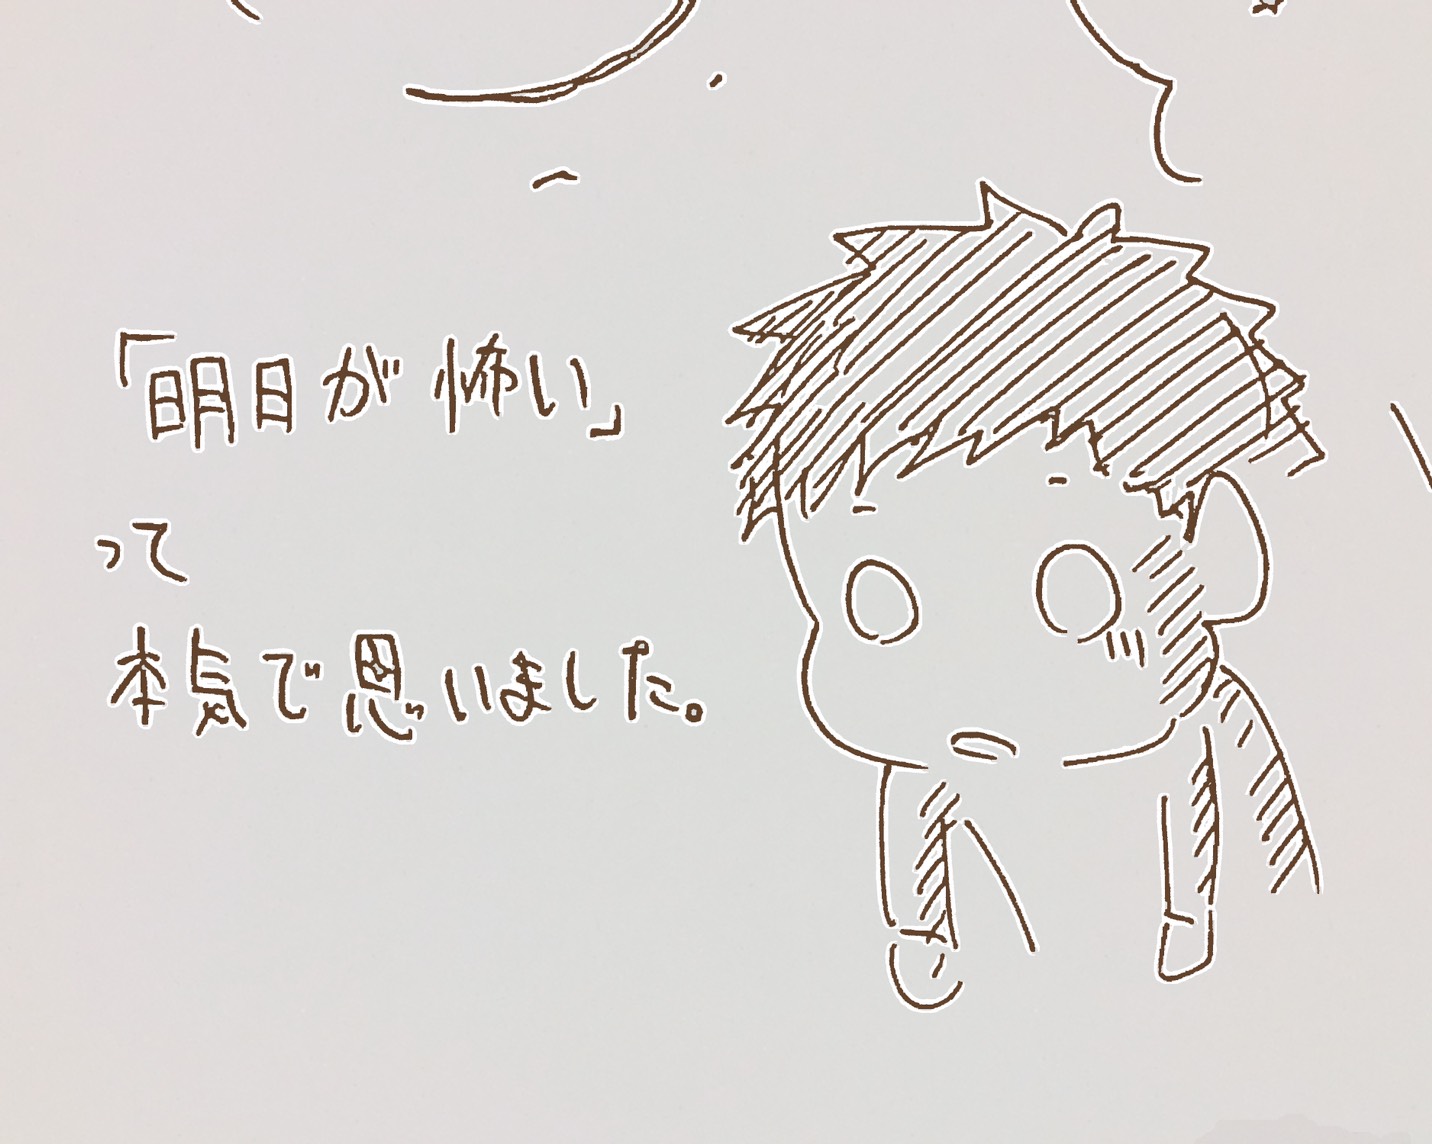 「明日が怖い」
って
本気で思いました。